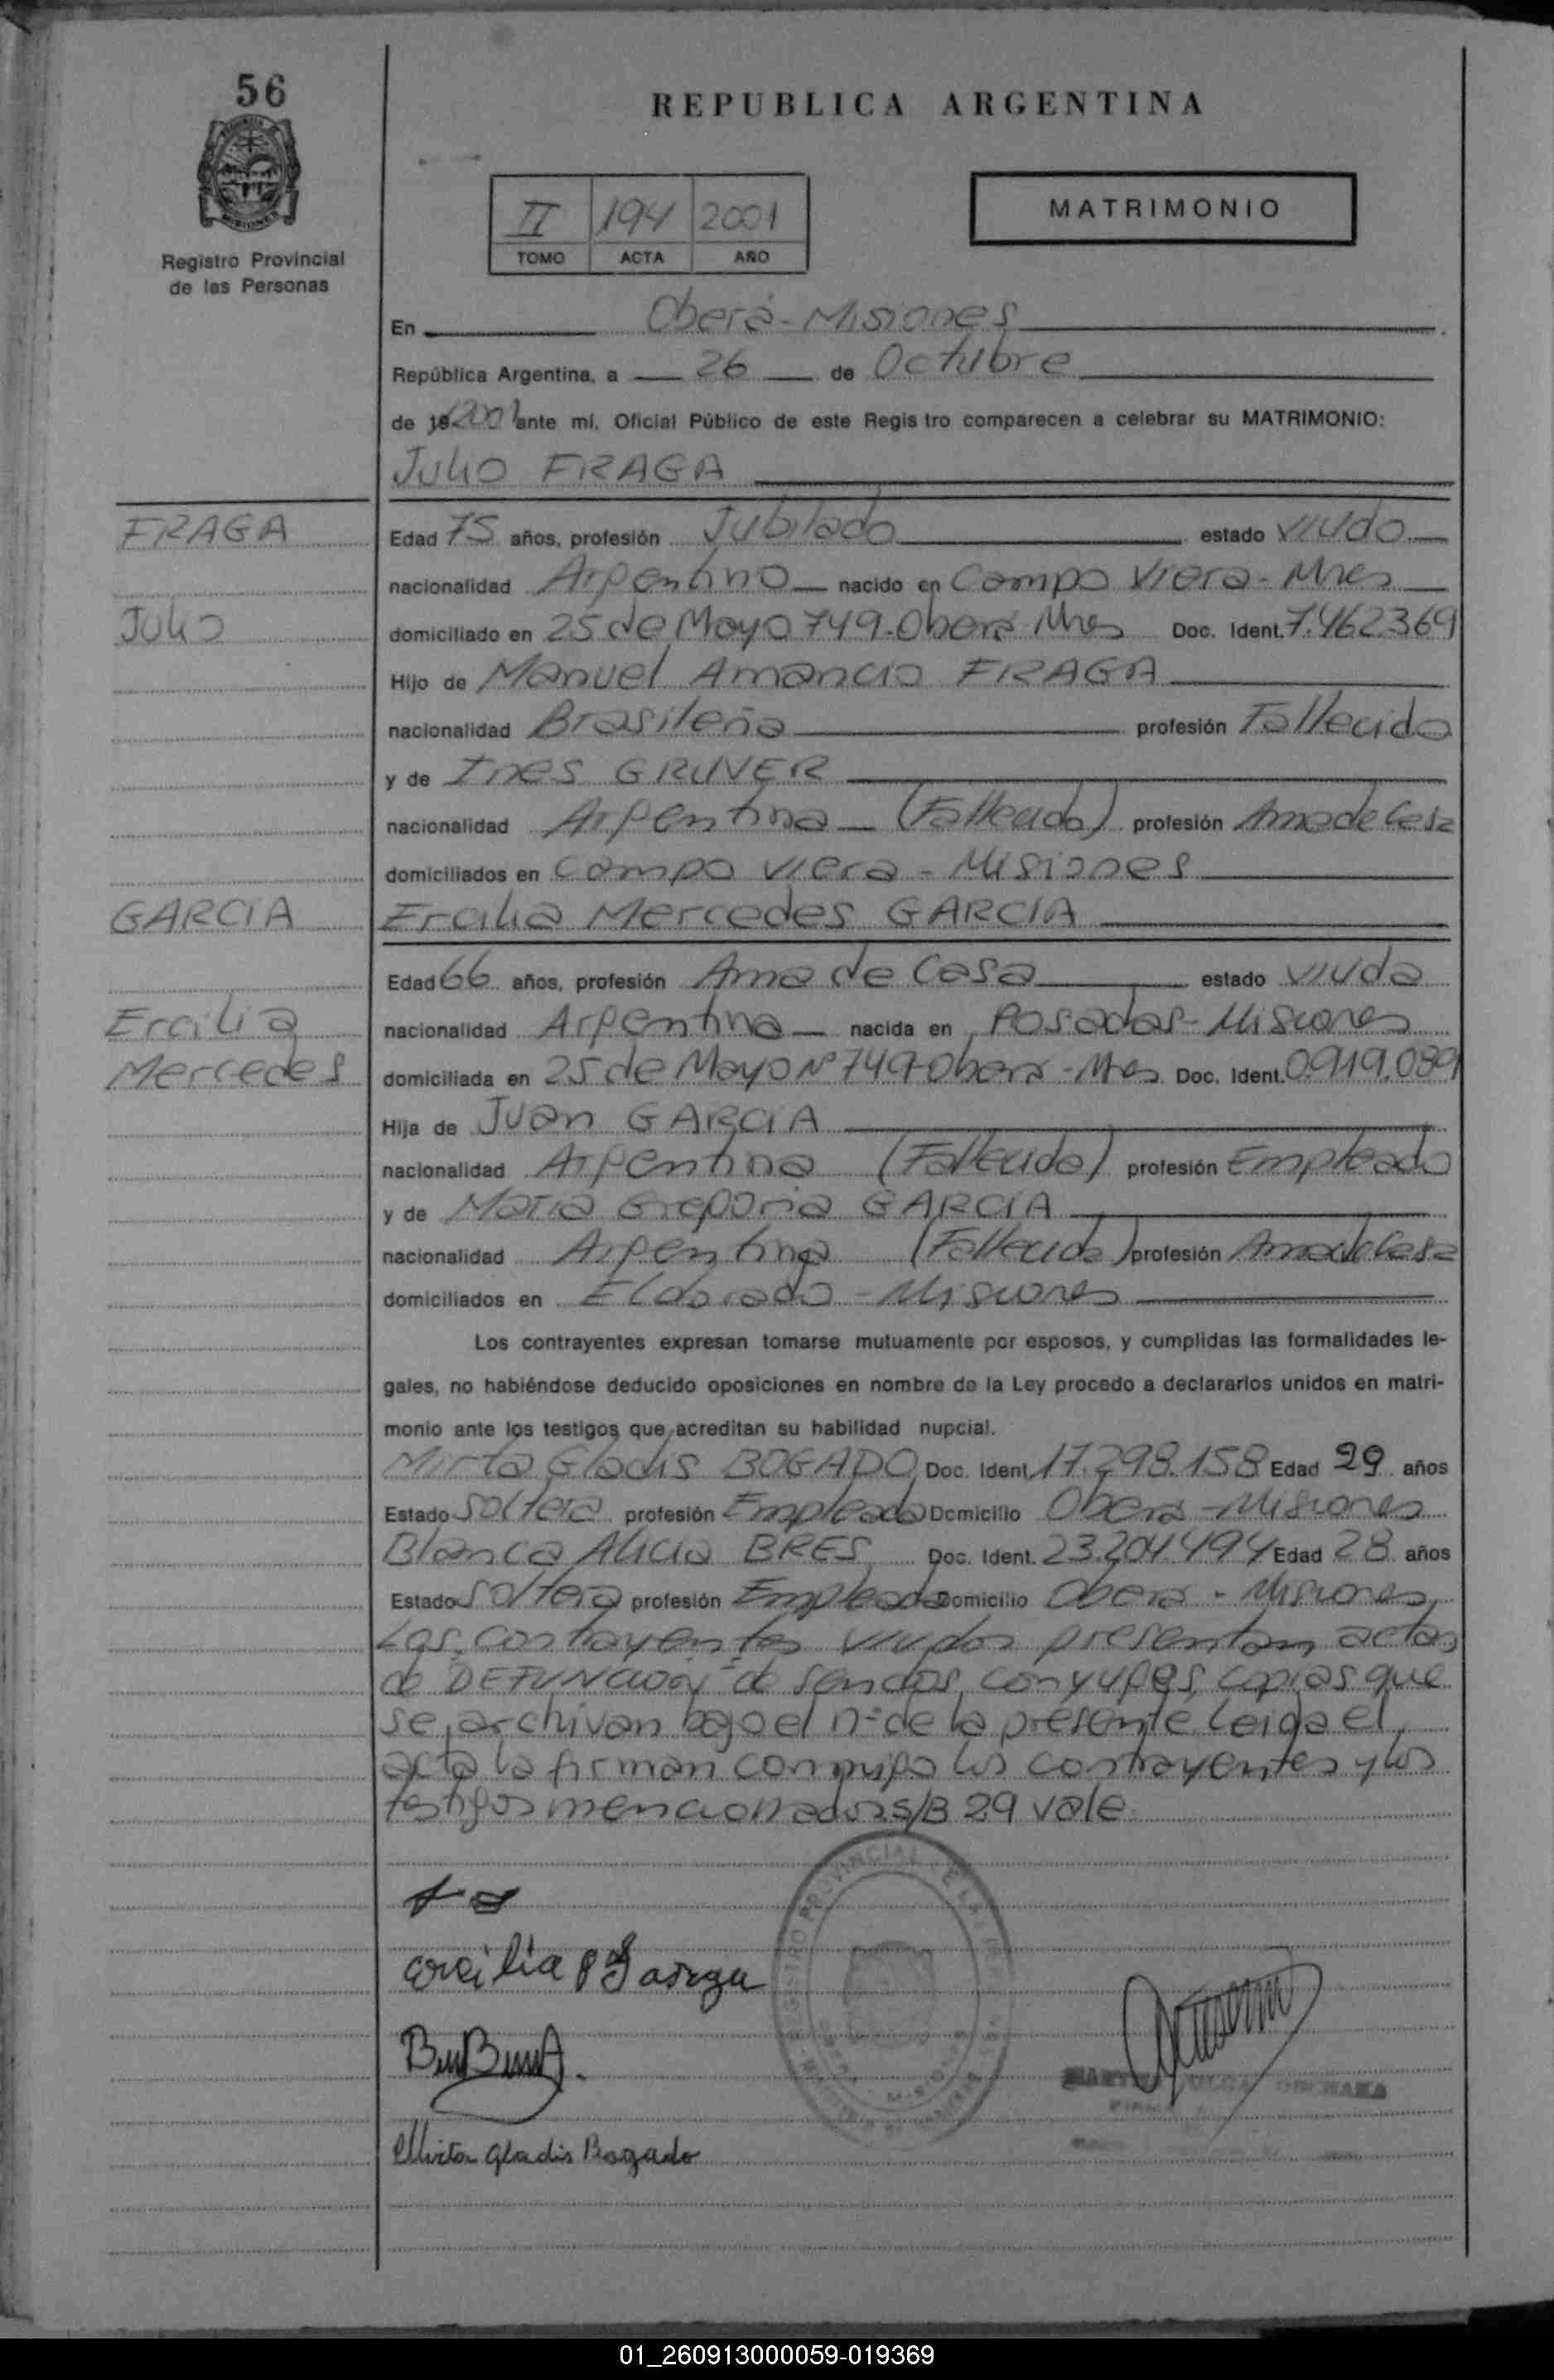 56
REPUBLICA ARGENTINA
II 194 2001
TOMO ACTA AÑO
MATRIMONIO
Registro Provincial
de las Personas
En Oberá - Misiones
República Argentina, a 26 de Octubre
de 19 2001 ante mí, Oficial Público de este Registro comparecen a celebrar su MATRIMONIO:
Julio FRAGA
FRAGA
Edad 75 años, profesión Jubilado estado Viudo
nacionalidad Argentino nacido en Campo Viera - Mnes
Julio
domiciliado en 25 de Mayo 749 - Oberá Mnes Doc. Ident. 7.462.369
Hijo de Manuel Amancio FRAGA
nacionalidad Brasileña profesión Fallecido
y de Ines GRUVER
nacionalidad Argentina (Fallecida) profesión Ama de Casa
domiciliados en Campo Viera - Misiones
GARCIA
Ercilia Mercedes GARCIA
Edad 66 años, profesión Ama de Casa estado Viuda
Ercilia
nacionalidad Argentina nacida en Posadas - Misiones
Mercedes
domiciliada en 25 de Mayo Nº 749 - Oberá - Mnes Doc. Ident. 0.919.089
Hija de Juan GARCIA
nacionalidad Argentina (Fallecido) profesión Empleado
y de Maria Gregoria GARCIA
nacionalidad Argentina (Fallecida) profesión Ama de Casa
domiciliados en Eldorado - Misiones
Los contrayentes expresan tomarse mutuamente por esposos, y cumplidas las formalidades le-
gales, no habiéndose deducido oposiciones en nombre de la Ley procedo a declararlos unidos en matri-
monio ante los testigos que acreditan su habilidad nupcial.
Mirta Gladis BOGADO Doc. Ident. 17.298.158 Edad 29 años
Estado Soltera profesión Empleada Domicilio Oberá - Misiones
Blanca Alicia BRES Doc. Ident. 23.204.494 Edad 28 años
Estado Soltera profesión Empleada Domicilio Oberá - Misiones
Los contrayentes viudos presentan actas
de DEFUNCION de sendos conyuges, copias que
se archivan bajo el nº de la presente Leida el
acta la firman conmigo los contrayentes y los
testigos mencionados S/B 29 vale.
Mirta Gladis Bogado
01_260913000059-019369